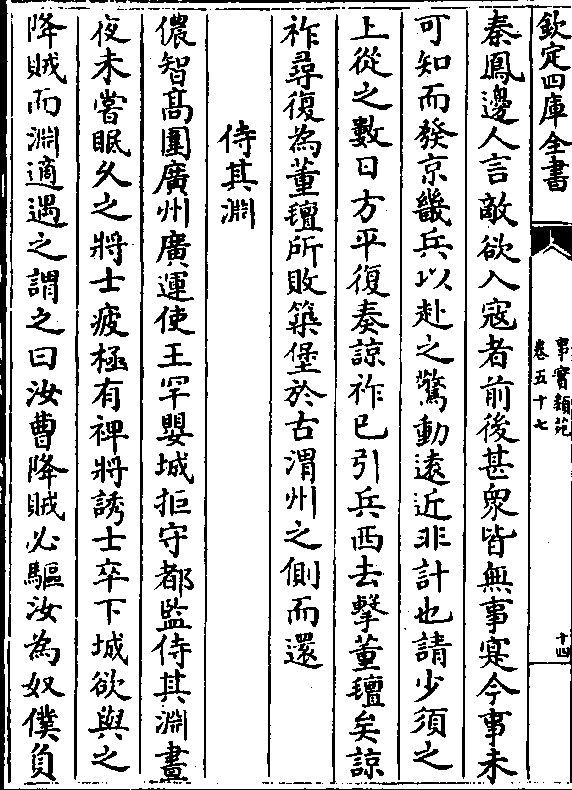 欽定四庫全書
事實類苑
卷五十七
十四
秦鳳邊人言敵欲入寇者前後甚衆皆無事寔今事未
可知而發京畿兵以赴之驚動逺近非計也請少須之
上從之數日方平復奏諒祚已引兵西去擊董氊矣諒
祚尋復為董氊所敗築堡於古渭州之側而還
侍其淵
儂智髙圍廣州廣運使王罕嬰城拒守都監侍其淵晝
夜未嘗眠久之將士疲極有裨將誘士卒下城欲與之
降賊而淵適遇之謂之曰汝曹降賊必驅汝為奴僕負